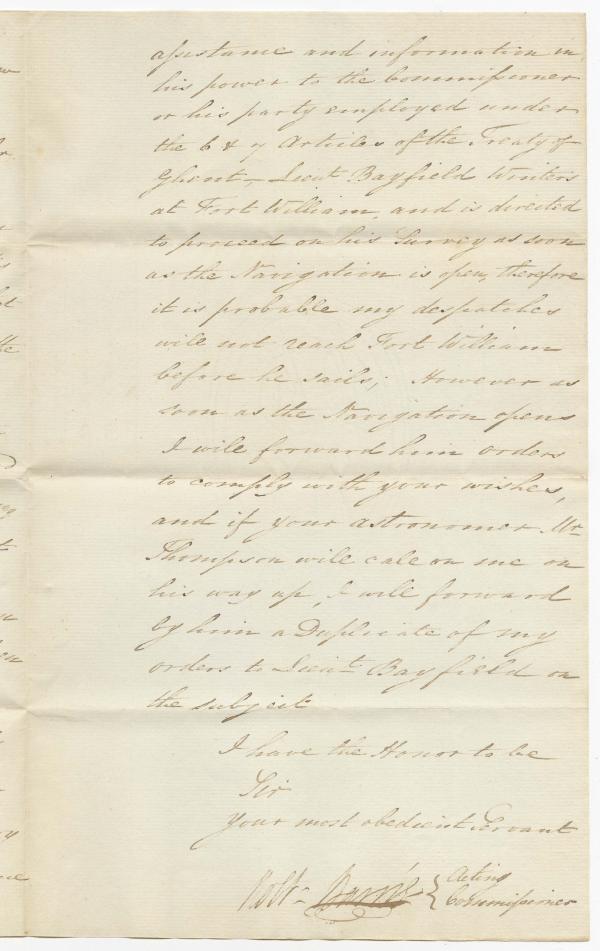 assistance and information in
his power to the Commissioner
or his party employed under
the 6 & 7 Articles of the Treaty of
Ghent, Lieut. Bayfield Winters
at Fort William, and is directed
to proceed on his Survey as soon
as the Navigation is open, therefore
it is probable my despatches
will not reach Fort William
before he sails; However as
soon as the Navigation opens
I will forward him orders
to comply with your wishes,
and if your astronomer Mr
Thompson will call on me on
his way up, I will forward
by him a Duplicate of my
orders to Lieut. Bayfield on
the subject
I have the Honor to be
Sir
Your most obedient Servant
Robt. Barrie { Acting
Commissioner